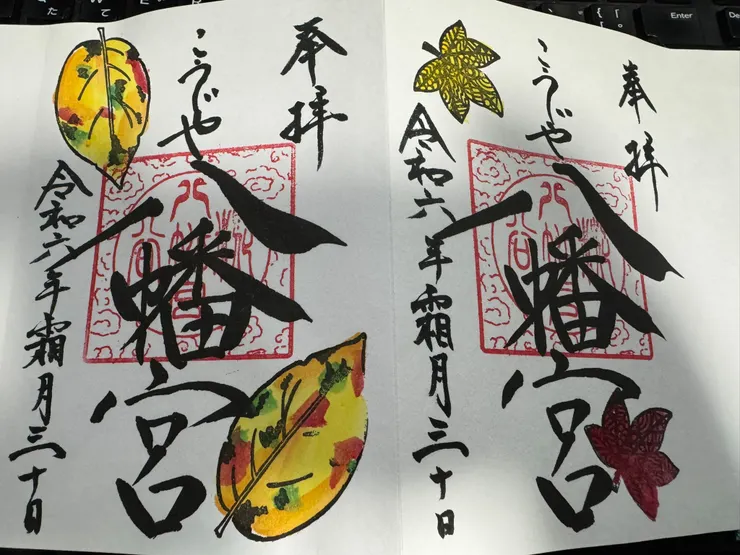 奉拝
こうじや
八幡宮
令和六年霜月三十日
奉拝
こうじや
八幡宮
令和六年霜月三十日
Enter